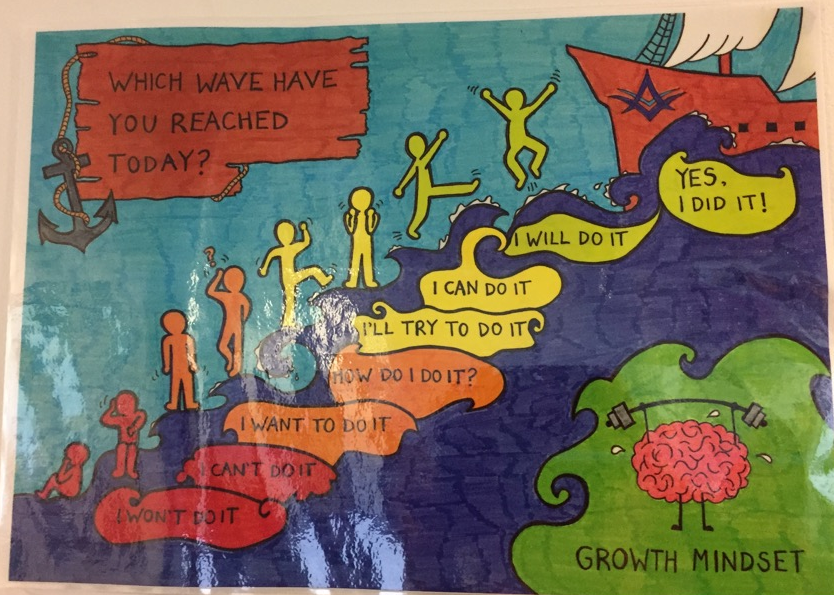 WHICH WAVE HAVE
YOU REACHED
TODAY?
?
YES,
I DID IT!
I WILL DO IT
I CAN DO IT
I'LL TRY TO DO IT
HOW DO I DO IT?
I WANT TO DO IT
I CAN'T DO IT
I WON'T DO IT
GROWTH MINDSET